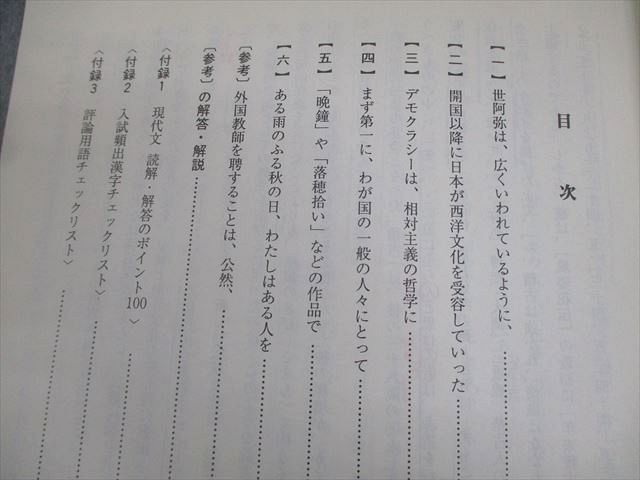 目次
【一】世阿弥は、広くいわれているように、……………
【二】開国以降に日本が西洋文化を受容していった……………
【三】デモクラシーは、相対主義の哲学に……………
【四】まず第一に、わが国の一般の人々にとって……………
【五】「晩鐘」や「落穂拾い」などの作品で……………
【六】ある雨のふる秋の日、わたしはある人を……………
〔参考〕外国教師を聘することは、公然、……………
〔参考〕の解答・解説……………
〈付録1　現代文 読解・解答のポイント100〉……………
〈付録2　入試頻出漢字チェックリスト〉……………
〈付録3　評論用語チェックリスト〉……………